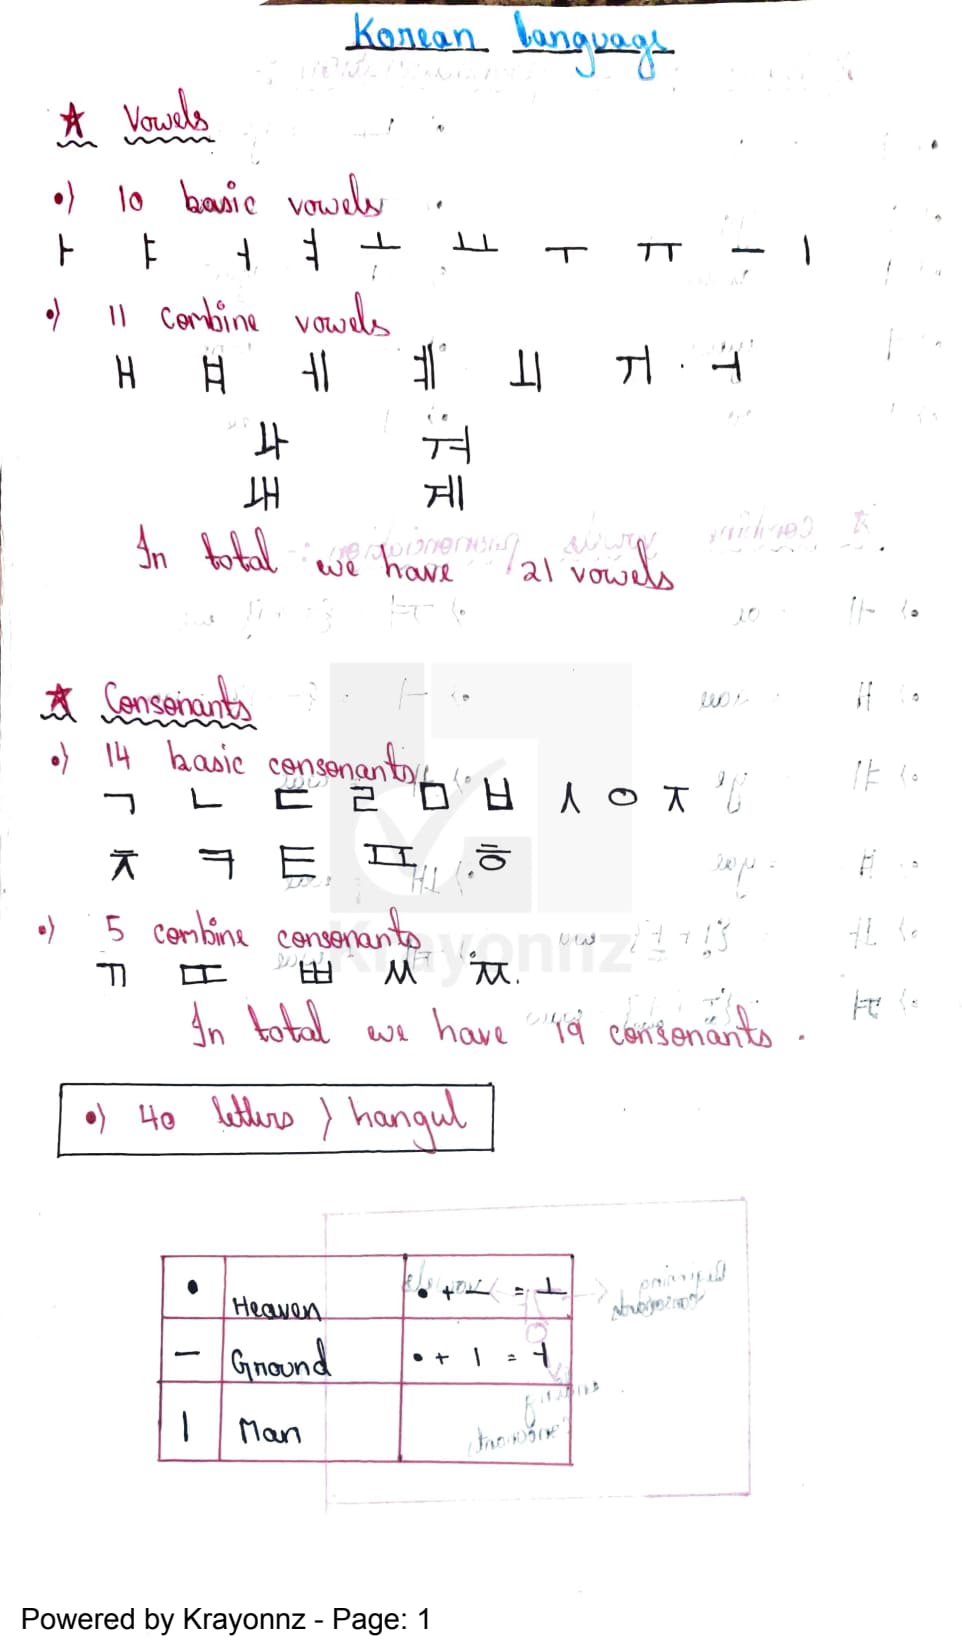 Korean language
☆ Vowels
•) 10 basic vowels
ㅏ ㅑ ㅓ ㅕ ㅗ ㅛ ㅜ ㅠ ㅡ ㅣ
•) 11 combine vowels
ㅐ ㅒ ㅔ ㅖ ㅚ ㅟ ㅢ
ㅘ ㅝ
ㅙ ㅞ
In total we have 21 vowels
☆ Consonants
•) 14 basic consonants
ㄱ ㄴ ㄷ ㄹ ㅁ ㅂ ㅅ ㅇ ㅈ
ㅊ ㅋ ㅌ ㅍ ㅎ
•) 5 combine consonants
ㄲ ㄸ ㅃ ㅆ ㅉ.
In total we have 19 consonants.
•) 40 letters } hangul
• Heaven • + ー = ㅗ
— Ground • + ㅣ = ㅓ
ㅣ Man
Krayonnz
Powered by Krayonnz - Page: 1